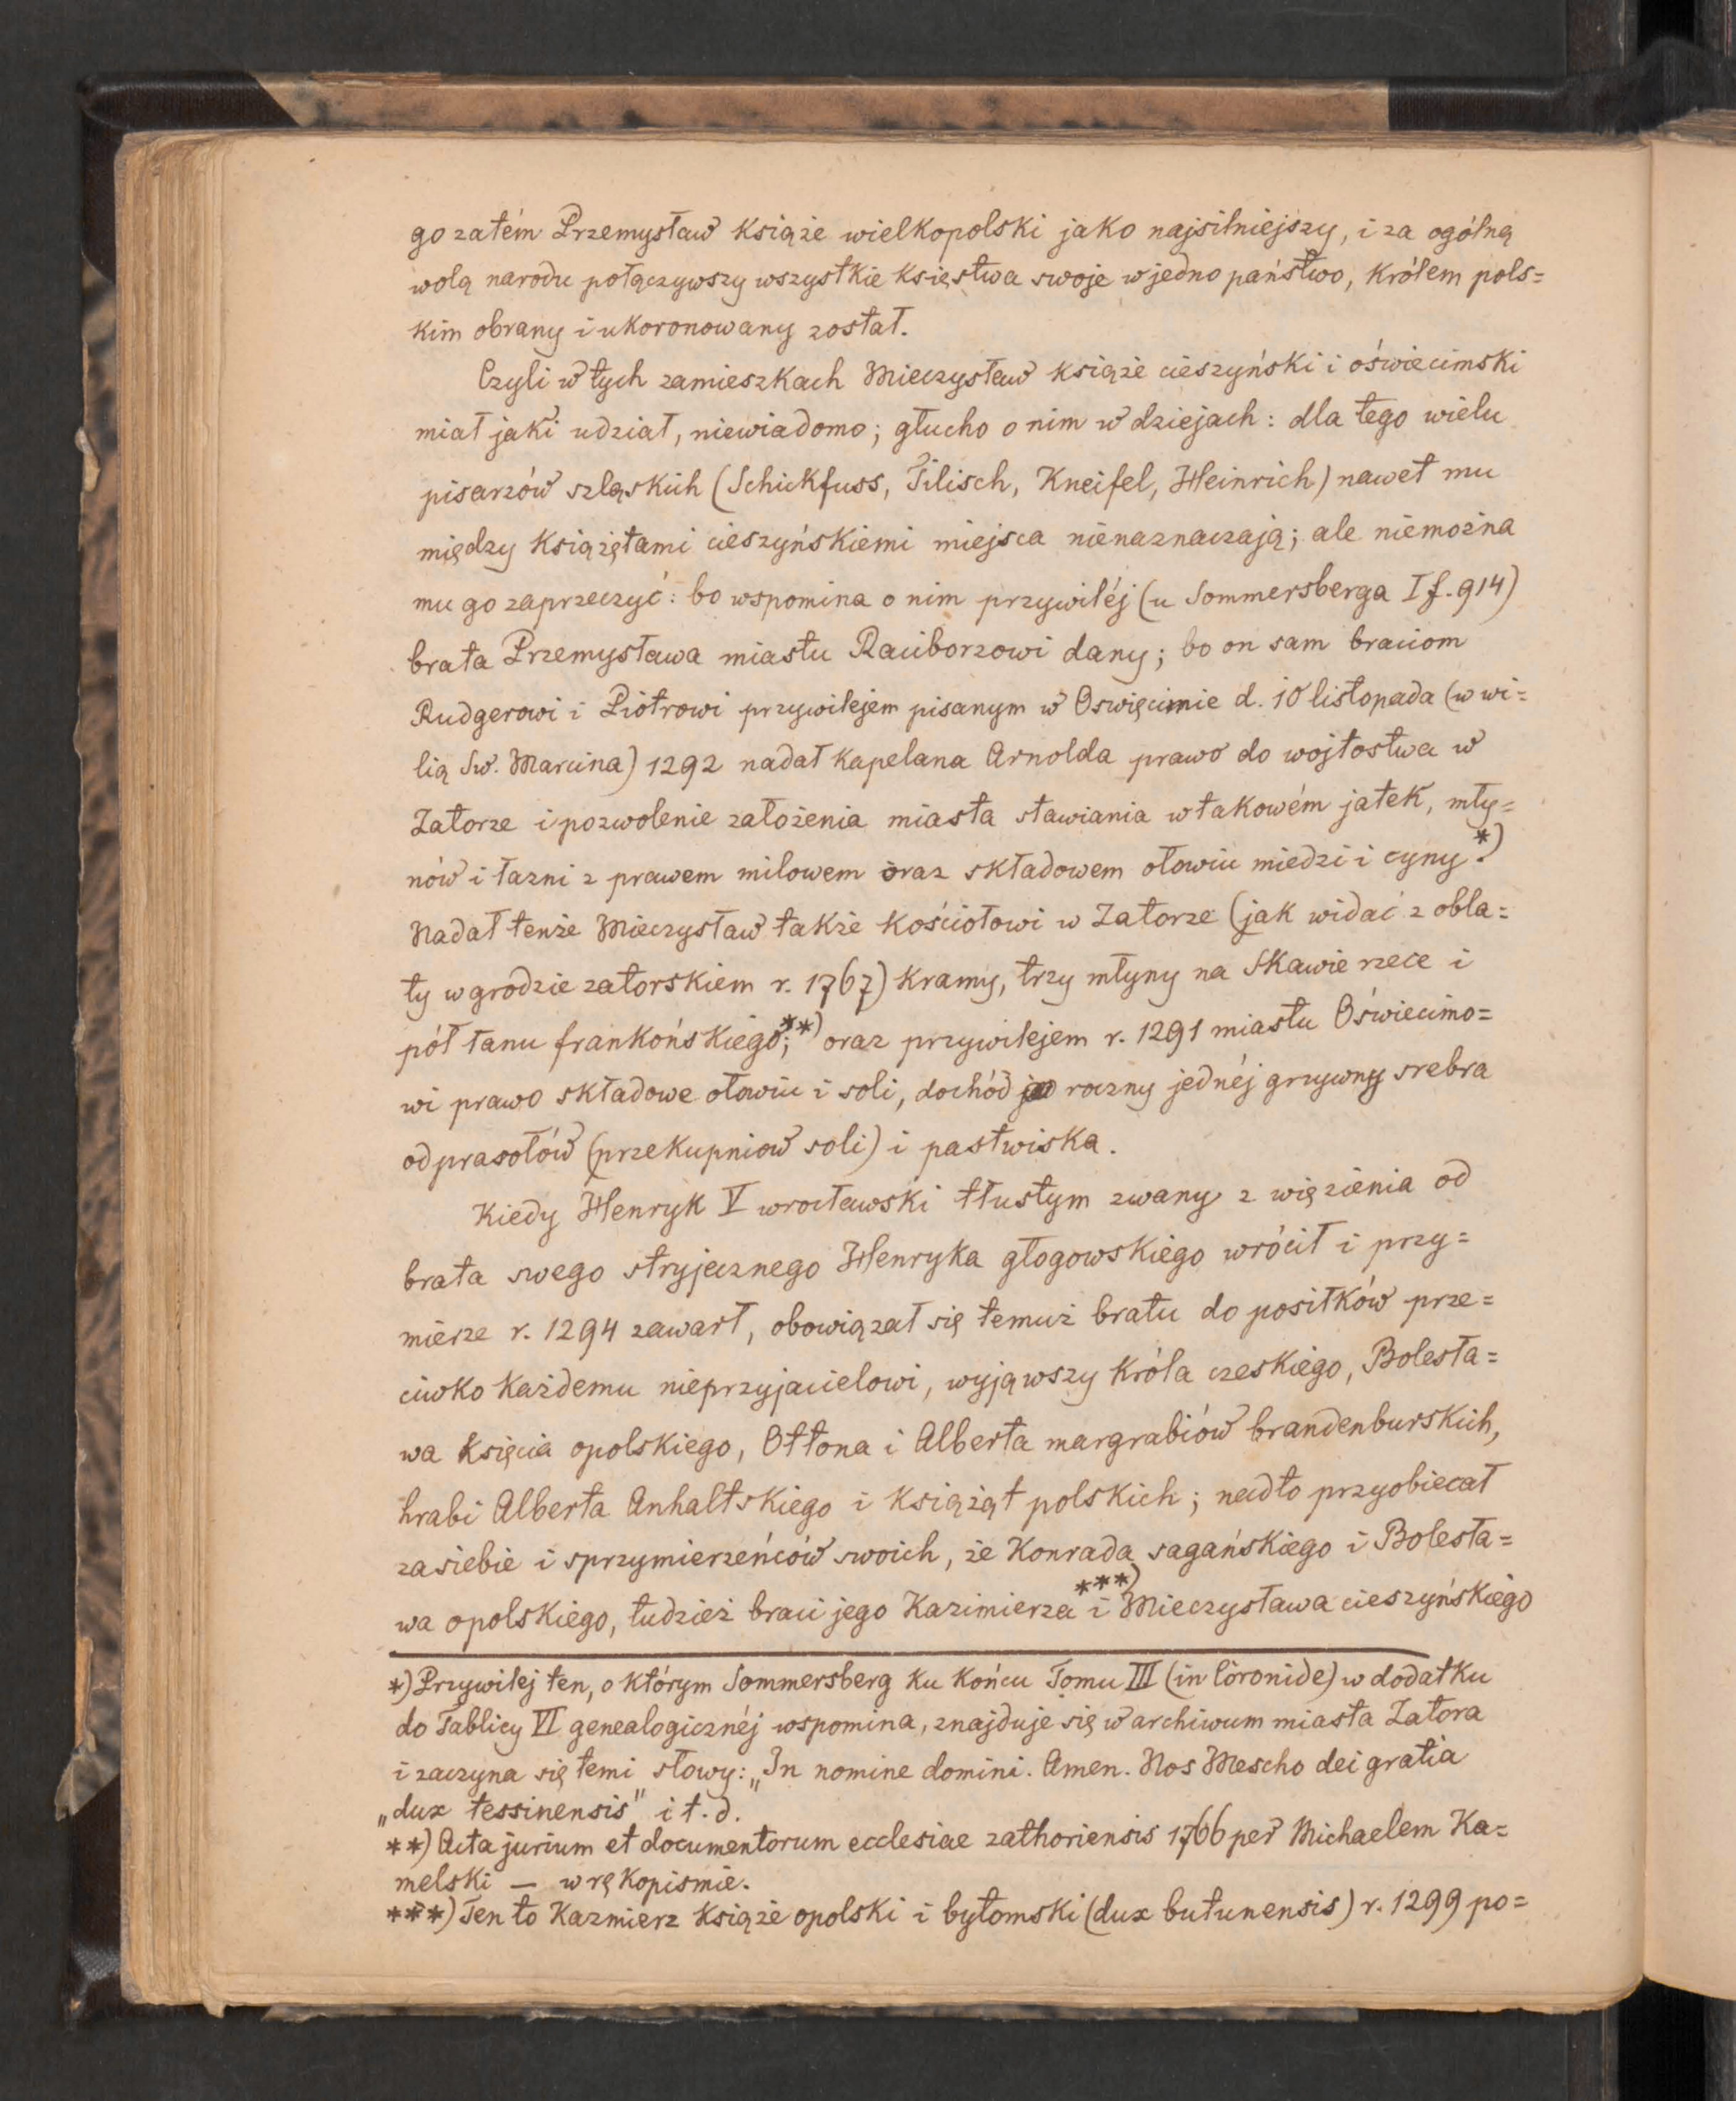 go zatém Przemysław książe wielkopolski jako najsilniejszy, i za ogólną
wolą narodu połączywszy wszystkie księstwa swoje w jedno państwo, królem pols=
kim obrany i ukoronowany został.
Czyli w tych zamieszkach Mieczysław książe cieszyński i oświecimski
miał jaki udział, niewiadomo; głucho o nim w dziejach: dla tego wielu
pisarzów szląskich (Schickfuss, Tilisch, Kneifel, Heinrich) nawet mu
między książętami cieszyńskiemi miejsca nienaznaczają; ale niemożna
mu go zaprzeczyć: bo wspomina o nim przywiléj (u Sommersberga I f. 914)
brata Przemysława miastu Raciborzowi dany; bo on sam braciom
Rudgerowi i Piotrowi przywilejem pisanym w Oswięcimie d. 10 listopada (w wi=
lią Sw. Marcina) 1292 nadał kapelana Arnolda prawo do wojtostwa w
Zatorze i pozwolenie założenia miasta stawiania w takowém jatek, mły=
nów i łazni z prawem milowem oraz składowem ołowiu miedzi i cyny*).
Nadał tenże Mieczysław także kościołowi w Zatorze (jak widać z obla=
ty w grodzie zatorskiem r. 1767) kramy, trzy młyny na Skawie rzece i
pół łanu frankońskiego;**) oraz przywilejem r. 1291 miastu Oświecimo=
wi prawo składowe ołowiu i soli, dochód roczny jednéj grzywny srebra
od prasołów (przekupniow soli) i pastwiska.
Kiedy Henryk V wrocławski tłustym zwany z więzienia od
brata swego stryjecznego Henryka głogowskiego wrócił i przy=
mierze r. 1294 zawarł, obowiązał się temuż bratu do posiłków prze=
ciwko każdemu nieprzyjacielowi, wyjąwszy króla czeskiego, Bolesła=
wa księcia opolskiego, Ottona i Alberta margrabiów brandenburskich,
hrabi Alberta Anhaltskiego i książąt polskich; nadto przyobiecał
za siebie i sprzymierzeńców swoich, że Konrada sagańskiego i Bolesła=
wa opolskiego, tudzież braci jego Kazimierza***) i Mieczysława cieszyńskiego
*) Przywilej ten, o którym Sommersberg ku końcu Tomu III (in Coronide) w dodatku
do Tablicy VI genealogicznéj wspomina, znajduje się w archiwum miasta Zatora
i zaczyna się temi słowy: „In nomine domini. Amen. Nos Mescho dei gratia
„dux tessinensis" i t. d.
**) Acta jurium et documentorum ecclesiae zathoriensis 1766 per Michaelem Ka=
melski — w rękopismie.
***) Ten to Kazmierz książe opolski i bytomski (dux butunensis) r. 1299 po=